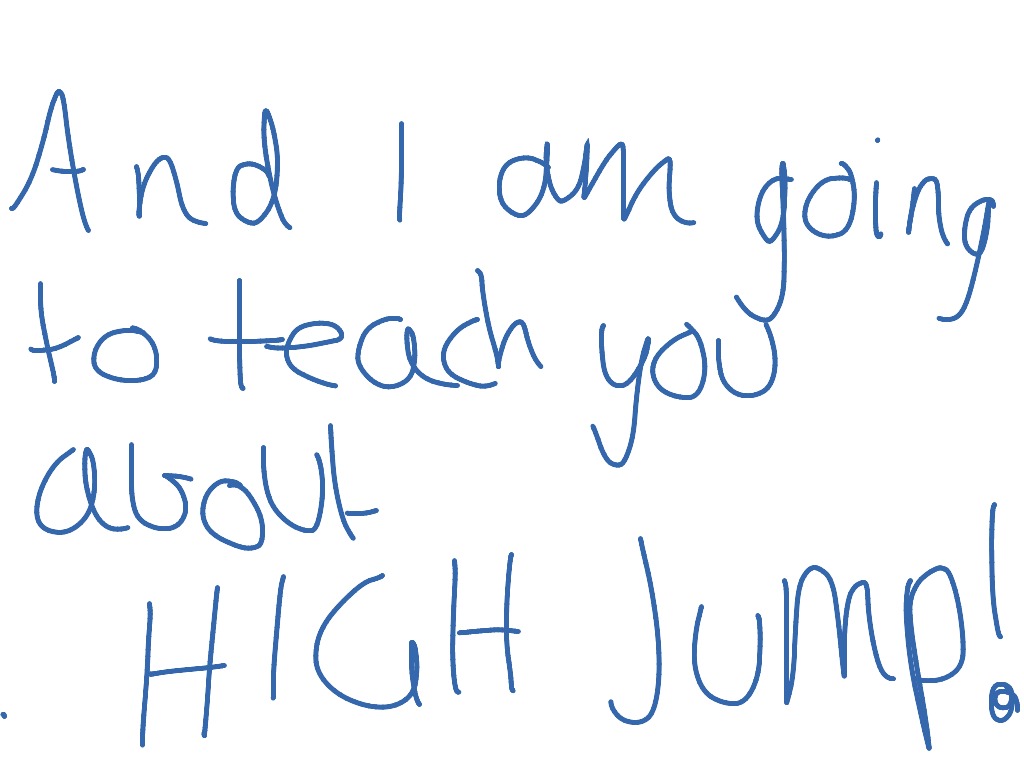 And I am going
to teach you
about
HIGH Jump!